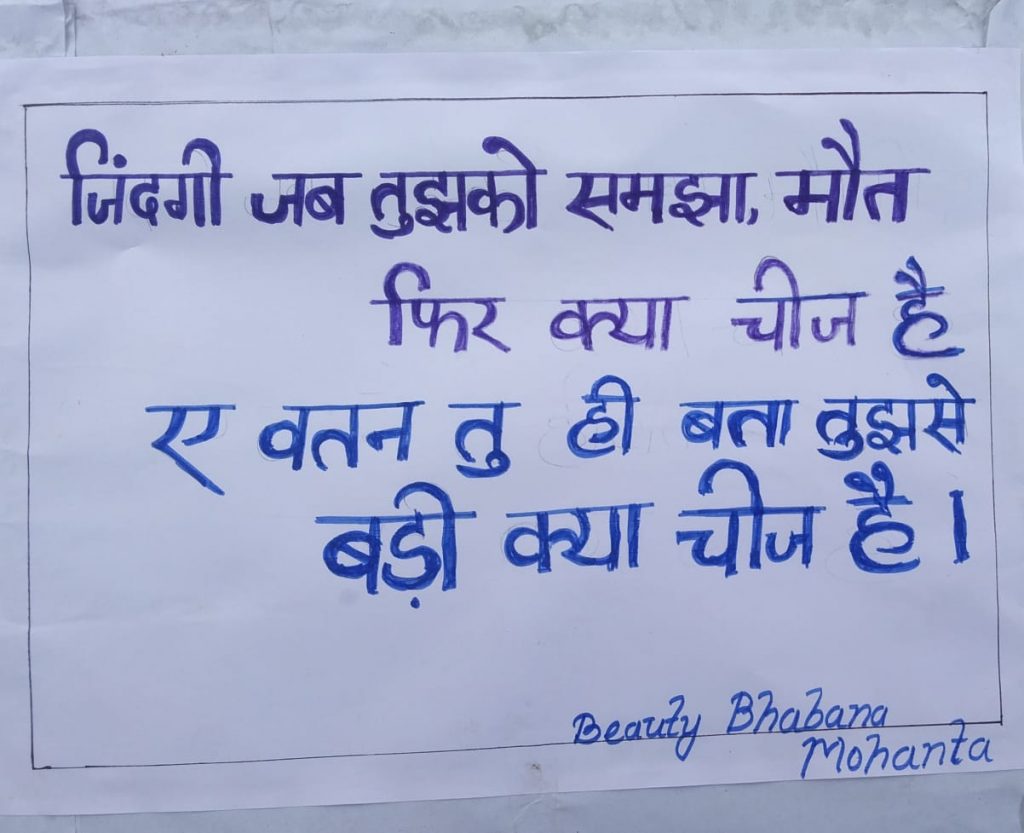 जिंदगी जब तुझको समझा, मौत
फिर क्या चीज है
ए वतन तु ही बता तुझसे
बड़ी क्या चीज है।
Beauty Bhabana
Mohanta